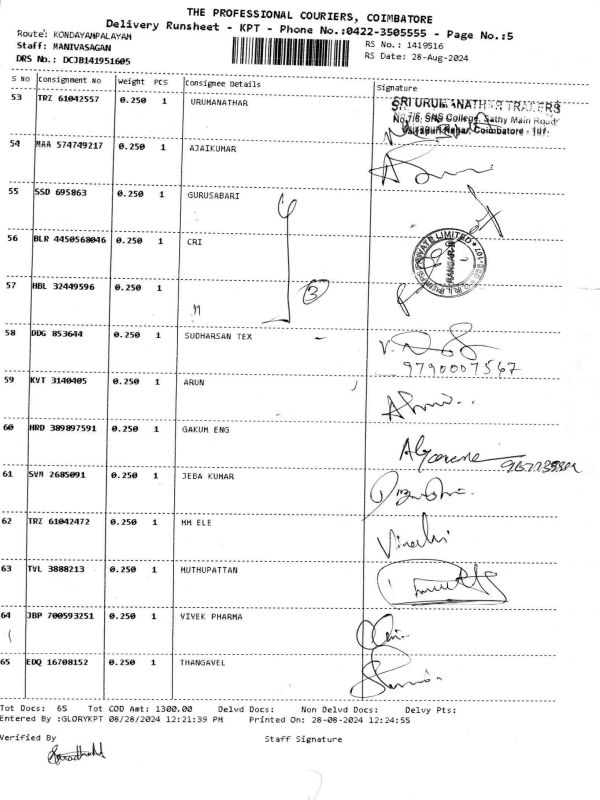 THE PROFESSIONAL COURIERS, COIMBATORE
Delivery Runsheet - KPT - Phone No.:0422-3505555 - Page No.:5
Route: KONDAYAMPALAYAM
Staff: MANIVASAGAN
DRS No.: DCJB141951605
RS No.: 1419516
RS Date: 28-Aug-2024
S No Consignment No Weight PCS Consignee Details Signature
53 TRZ 61042557 0.250 1 URUMANATHAR
SRI URUMANATHAR TRADERS
No.7/6, SNS College, Sathy Main Road
Coimbatore
54 MAA 574749217 0.250 1 AJAIKUMAR
55 SSD 695863 0.250 1 GURUSABARI
56 BLR 4450568046 0.250 1 CRI
PRIVATE LIMITED
57 HBL 32449596 0.250 1
3
58 DDG 853644 0.250 1 SUDHARSAN TEX
9790007567
59 KVT 3140405 0.250 1 ARUN
60 HRD 389897591 0.250 1 GAKUM ENG
61 SVM 2685091 0.250 1 JEBA KUMAR
62 TRZ 61042472 0.250 1 MM ELE
63 TVL 3888213 0.250 1 MUTHUPATTAN
64 JBP 700593251 0.250 1 VIVEK PHARMA
65 EDQ 16708152 0.250 1 THANGAVEL
Tot Docs: 65 Tot COD Amt: 1300.00 Delvd Docs: Non Delvd Docs: Delvy Pts:
Entered By :GLORYKPT 08/28/2024 12:21:39 PM Printed On: 28-08-2024 12:24:55
Verified By Staff Signature